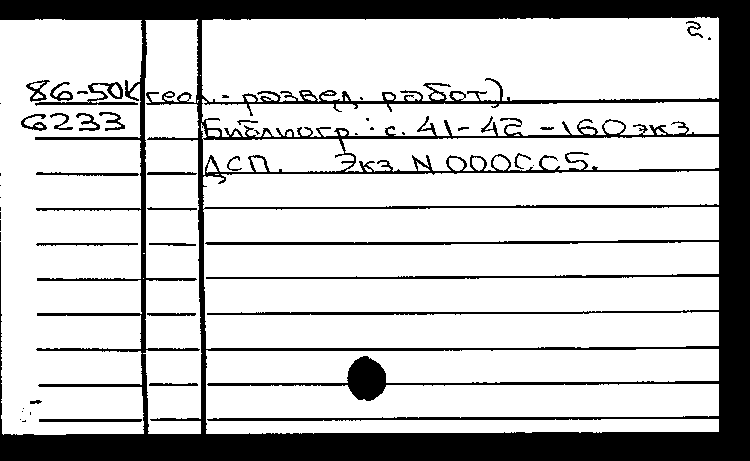 2.
86-50К геол.-развед. работ).
6233 Библиогр.: с. 41-42 -160 экз.
ДСП. Экз. N 000005.